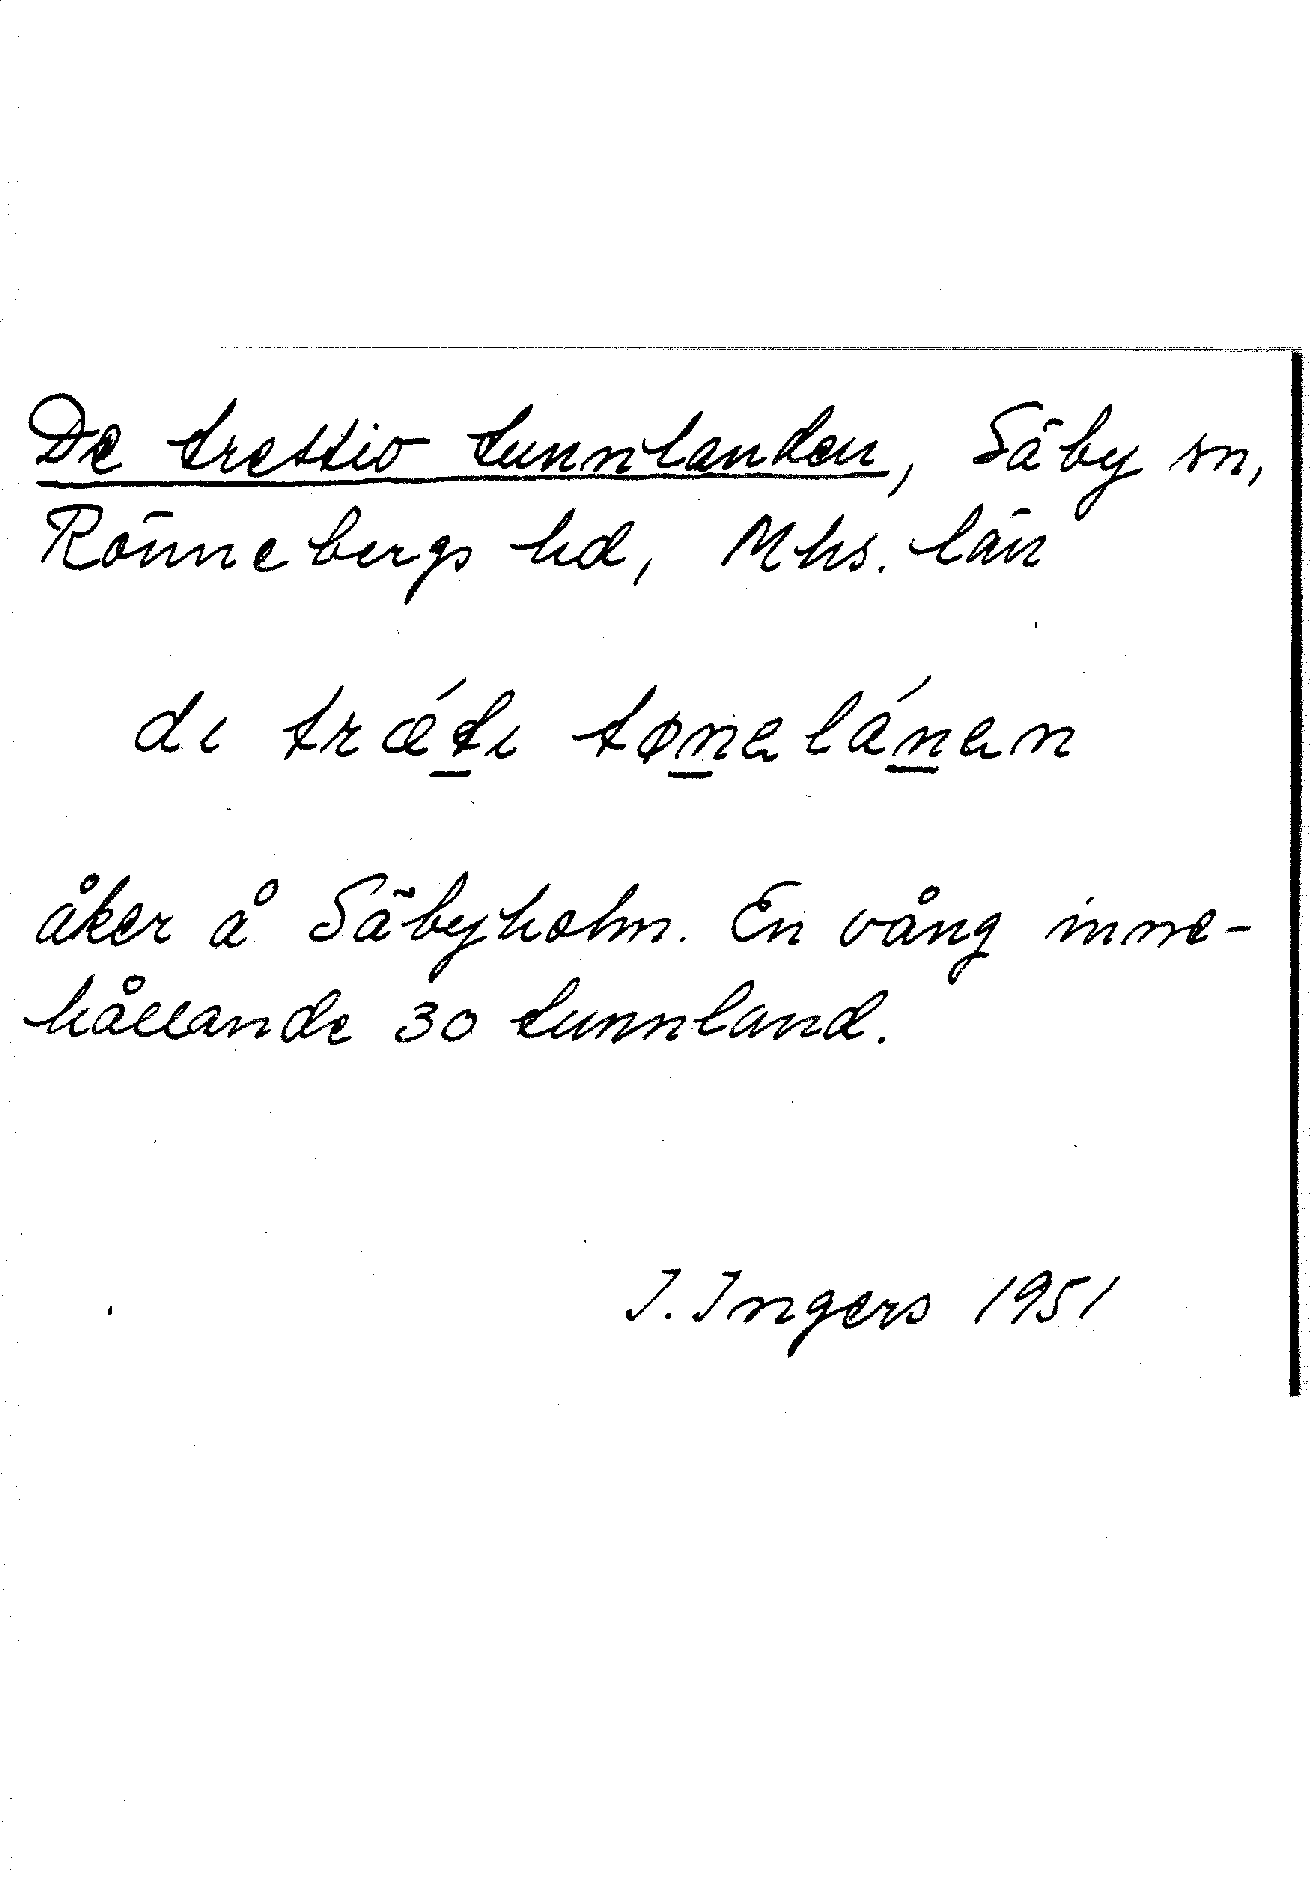 De trettio tunnlanden, Säby sn,
Rönnebergs hd, Mhs. län
dɩ trǽt̲ɩ tøn̲alán̲an
åker å Säbyholm. En vång inne-
hållande 30 tunnland.
I. Ingers 1951